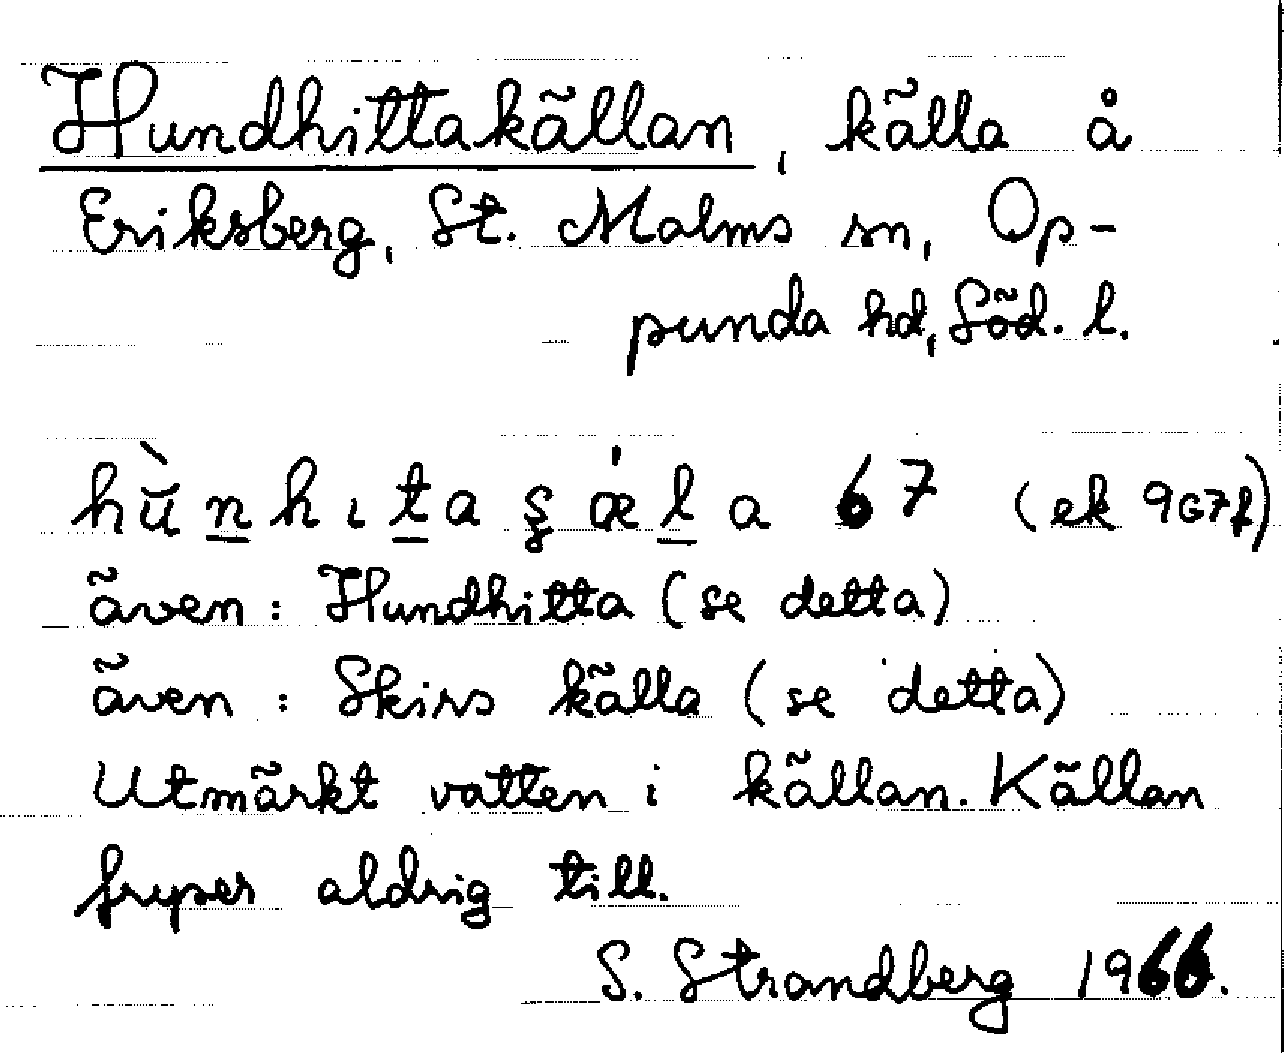 Hundhittakällan, källa å
Eriksberg, St. Malms sn, Op-
punda hd, Söd. l.
hùn̲hɩt̲aʂǽl̲a 67 (ek 967f)
även: Hundhitta (se detta)
även: Skirs källa (se detta)
Utmärkt vatten i källan. Källan
fryser aldrig till.
S. Strandberg 1966.